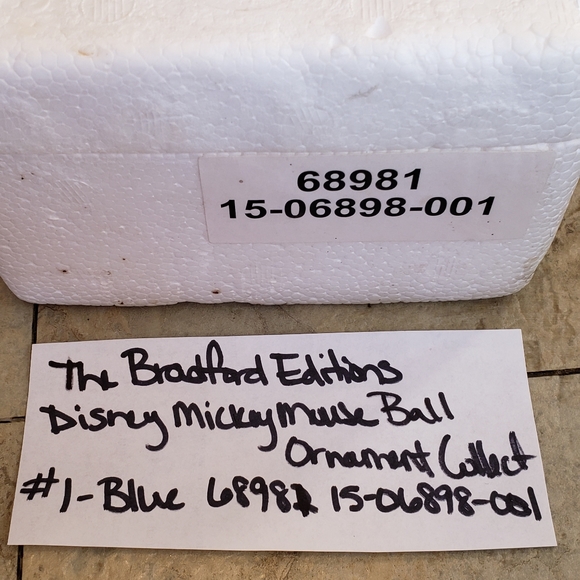 68981
15-06898-001
The Bradford Editions
Disney Mickey Mouse Ball
Ornament Collect
#1-Blue 68981 15-06898-001